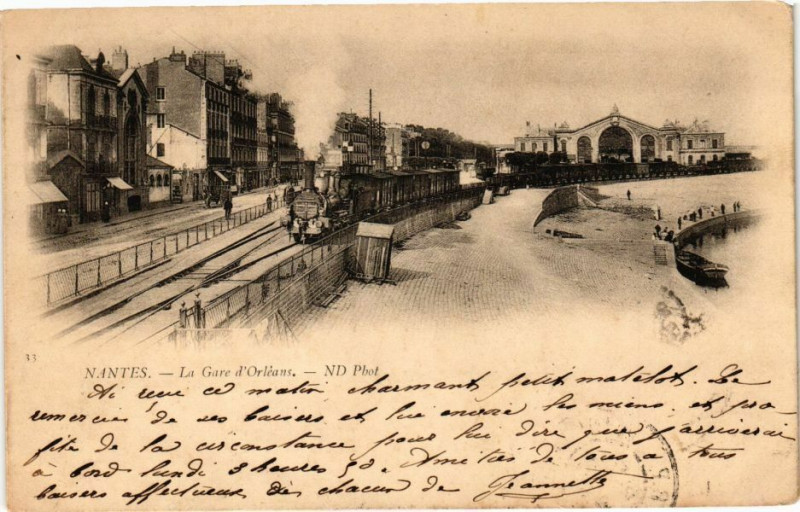 33
NANTES. — La Gare d'Orléans. — ND Phot
Ai reçu ce matin charmant petit matelot. Le
remercie de ses baisers et lui envoie les miens et pro-
fite de la circonstance pour lui dire que j'arriverai
à bord lundi 3 heures 50. Amitiés de tous a tous
baisers affectueux de chacun de Jeannette